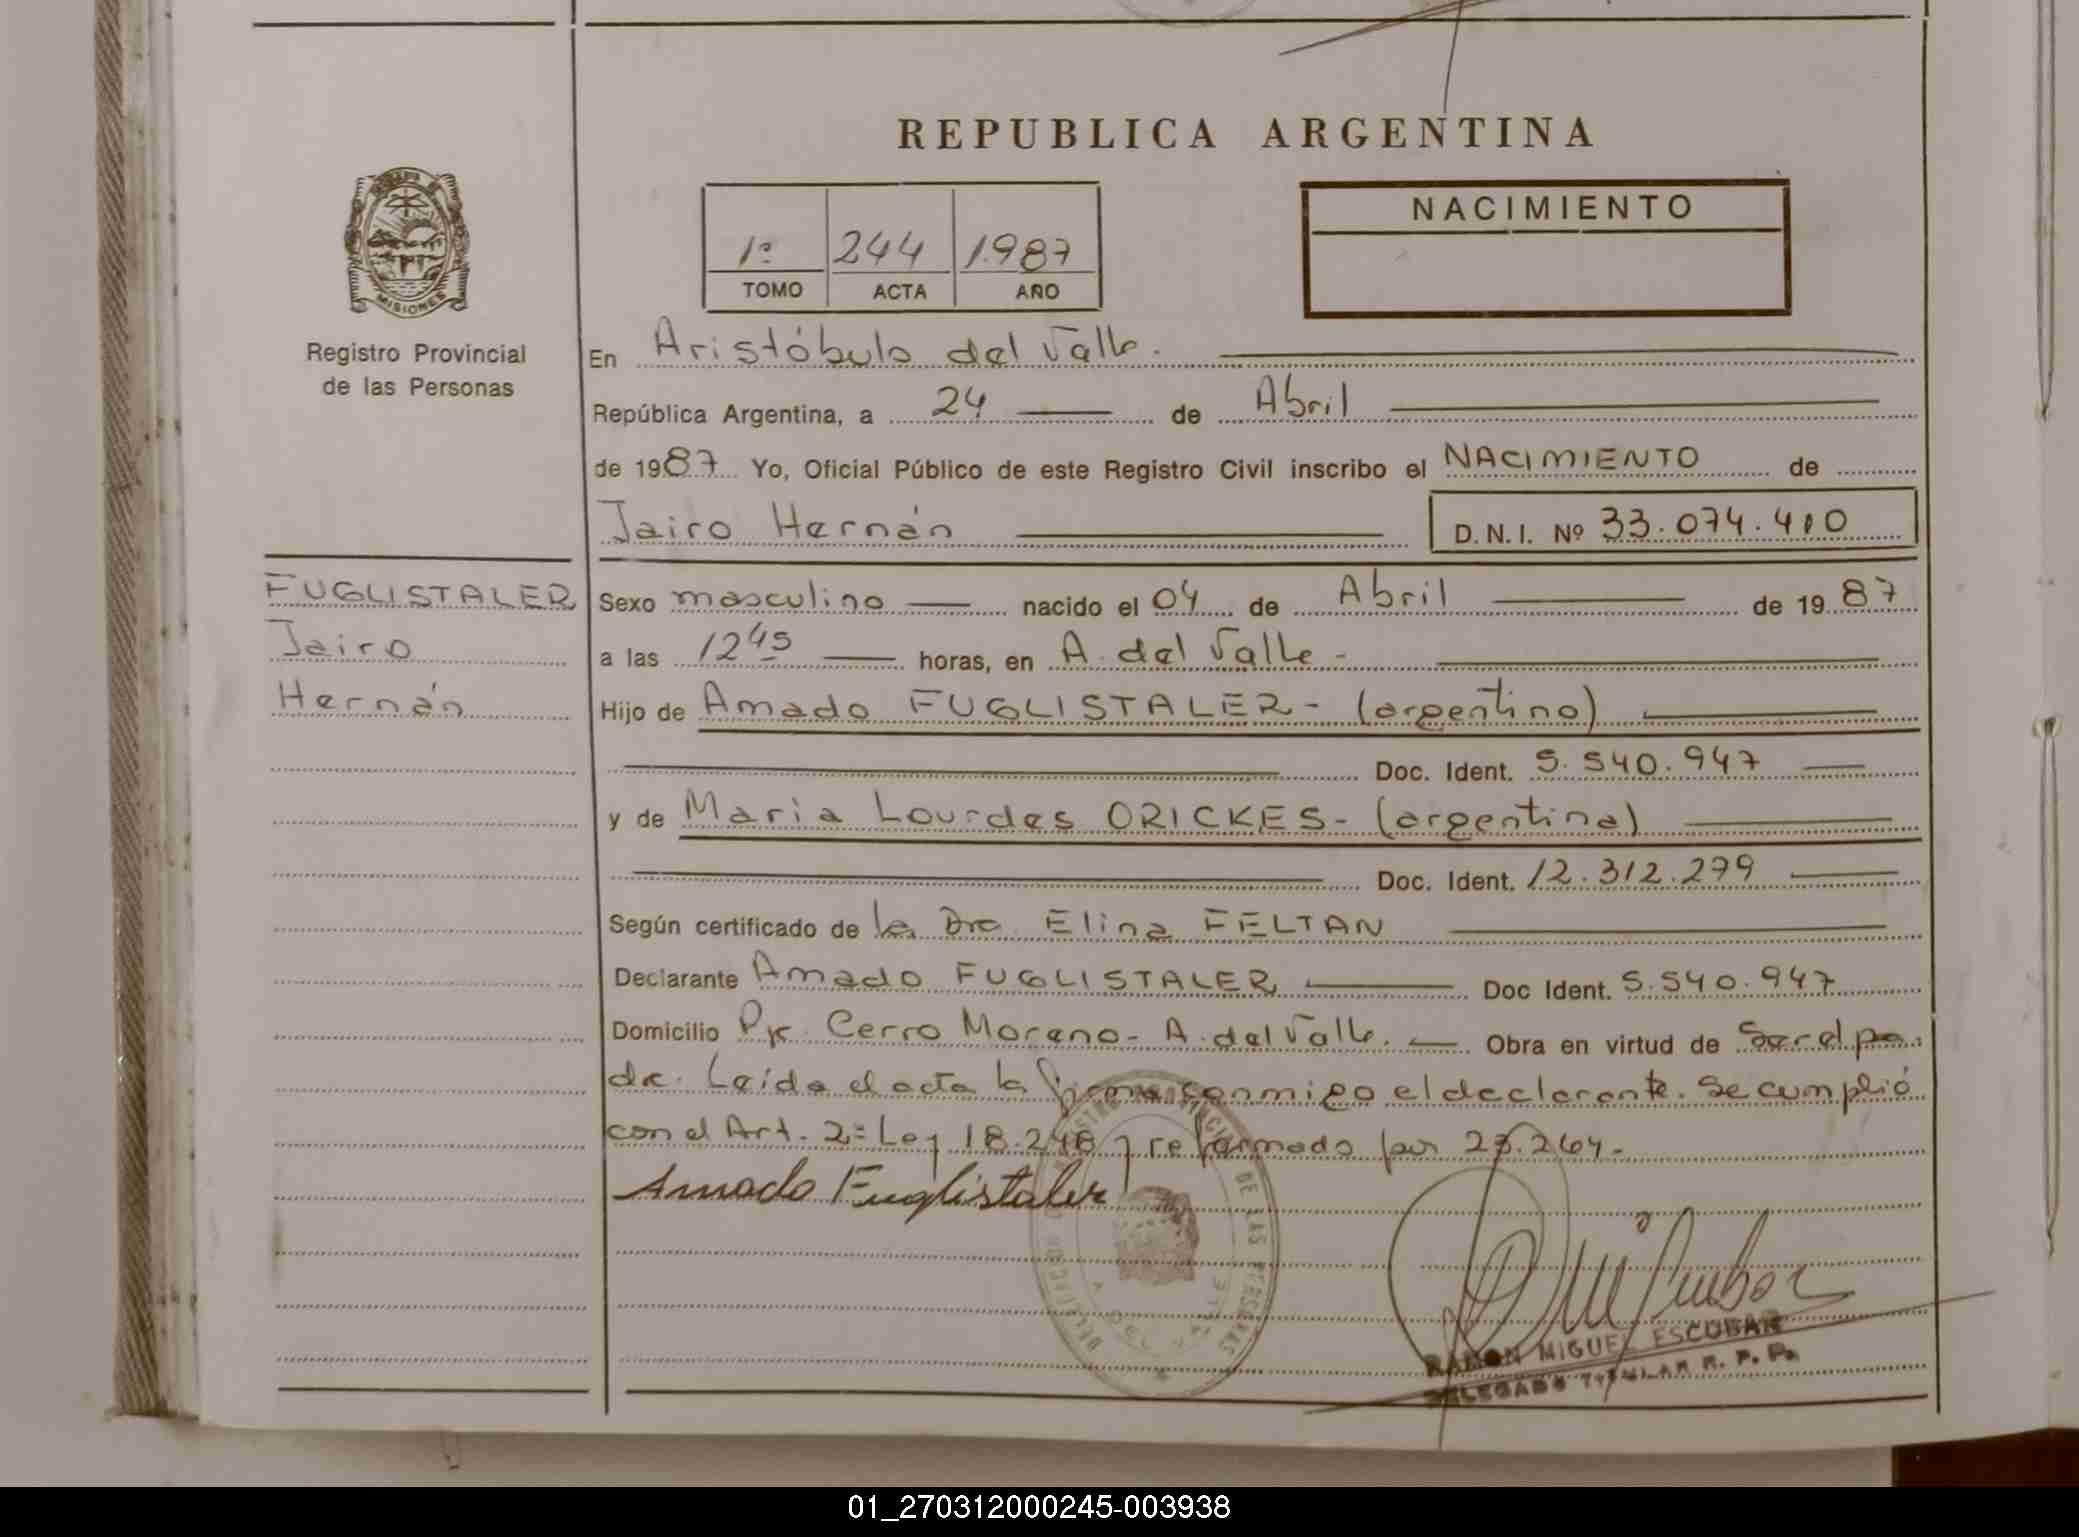 REPUBLICA ARGENTINA
MISIONES
Registro Provincial
de las Personas
1º 244 1.987
TOMO ACTA AÑO
NACIMIENTO
En Aristóbulo del Valle.
República Argentina, a 24 de Abril
de 1987 Yo, Oficial Público de este Registro Civil inscribo el NACIMIENTO de
Jairo Hernán D.N.I. Nº 33.074.410
FUGLISTALER
Jairo
Hernán
Sexo masculino nacido el 04 de Abril de 1987
a las 12 45 horas, en A. del Valle -
Hijo de Amado FUGLISTALER - (argentino)
Doc. Ident. 5.540.947
y de Maria Lourdes ORICKES - (argentina)
Doc. Ident. 12.312.279
Según certificado de la Dra. Elina FELTAN
Declarante Amado FUGLISTALER Doc Ident. 5.540.947
Domicilio Pje. Cerro Moreno - A. del Valle. Obra en virtud de Ser el pa-
dre. Leída el acta la firma conmigo el declarante. Se cumplió
con el Art. 2º Ley 18.248 y reformado por 23.264.-
Amado Fuglistaler
DE LAS PERSONAS
RAMON MIGUEL ESCOBAR
DELEGADO TITULAR R. P. P.
01_270312000245-003938